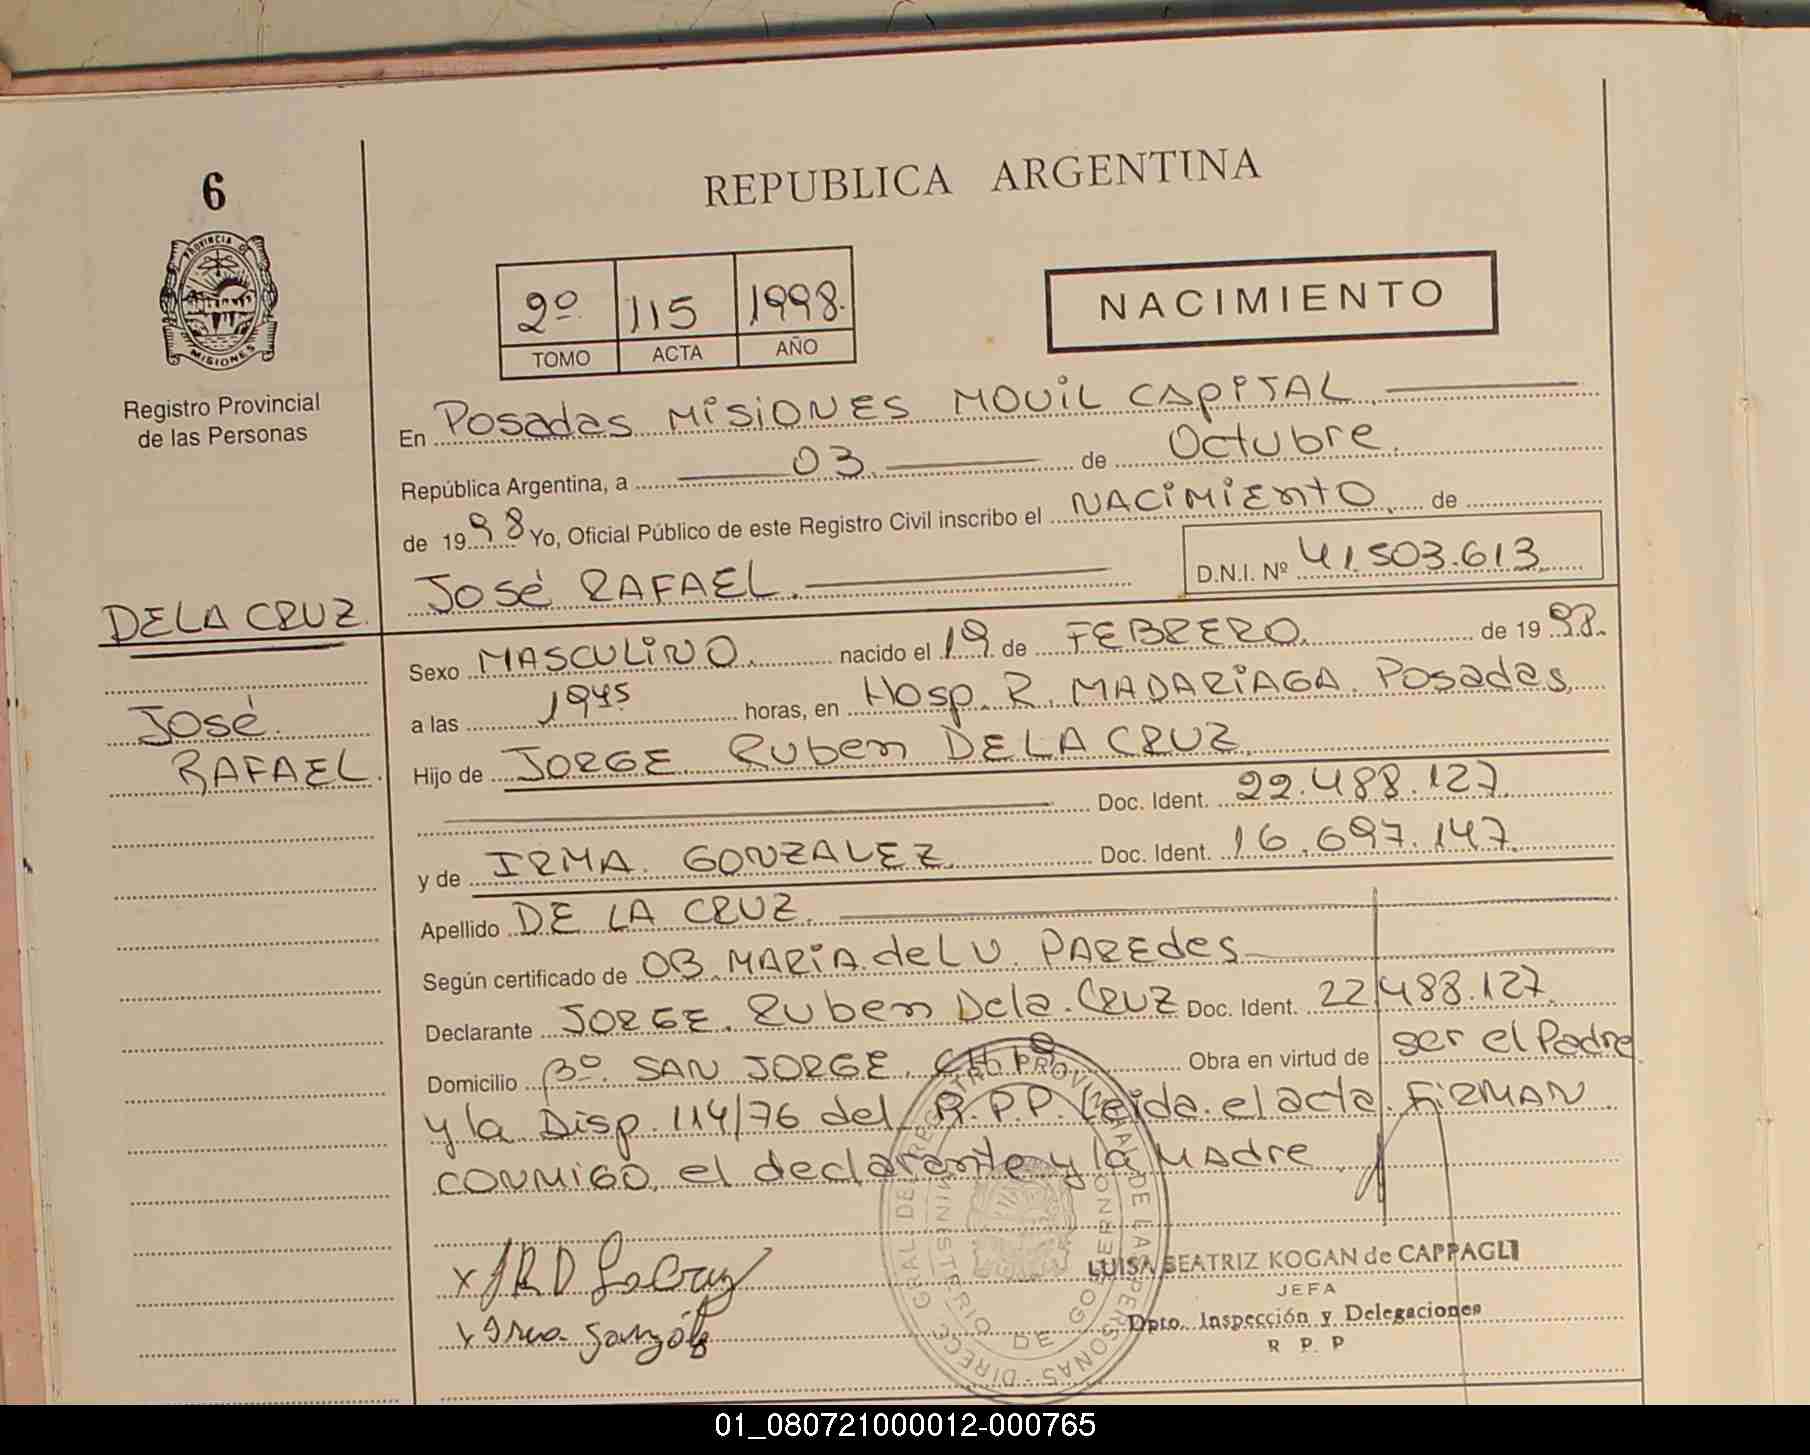 6
REPUBLICA ARGENTINA
PROVINCIA DE
MISIONES
Registro Provincial
de las Personas
2º 115 1998.
TOMO ACTA AÑO
NACIMIENTO
En Posadas MISIONES MOVIL CAPITAL
República Argentina, a 03 de Octubre
de 1998 Yo, Oficial Público de este Registro Civil inscribo el NACIMIENTO de
José RAFAEL. D.N.I. Nº 41.503.613
DE LA CRUZ
José
RAFAEL.
Sexo MASCULINO. nacido el 19 de FEBRERO. de 1998.
a las 1945 horas, en Hosp. R. MADARIAGA. Posadas
Hijo de JORGE Ruben DE LA CRUZ
Doc. Ident. 22.488.127
y de IRMA. GONZALEZ Doc. Ident. 16.697.147.
Apellido DE LA CRUZ.
Según certificado de OB. MARIA del V. PAREDES
Declarante JORGE. Ruben De la Cruz Doc. Ident. 22.488.127
Domicilio Bº. SAN JORGE. CH 19 Obra en virtud de ser el Padre
y la Disp. 114/76 del R.P.P. Leida el acta. FIRMAN
CONMIGO, el declarante y la Madre
x JRD La Cruz
x Irma Gonzáles
DIRECC. GRAL DE REGISTRO PROVINCIAL DE LAS PERSONAS
MINISTERIO DE GOBIERNO
LUISA BEATRIZ KOGAN de CAPPAGLI
JEFA
Dpto. Inspección y Delegaciones
R P. P
01_080721000012-000765